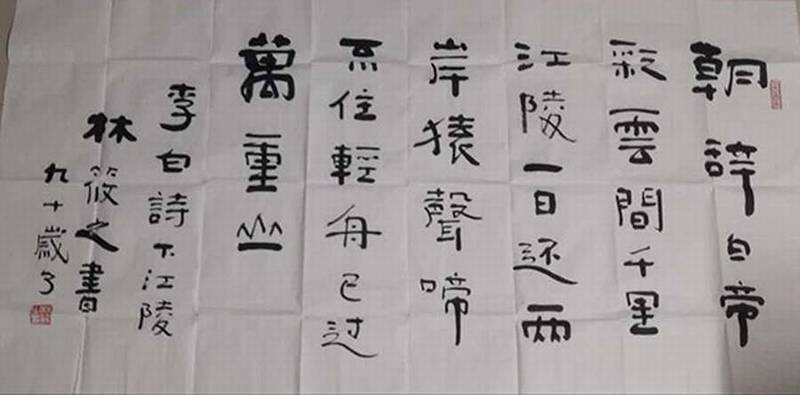 朝辞白帝
彩雲間千里
江陵一日还兩
岸猿聲啼
不住輕舟已过
萬重山
李白詩下江陵
林筱之書
九十歲了